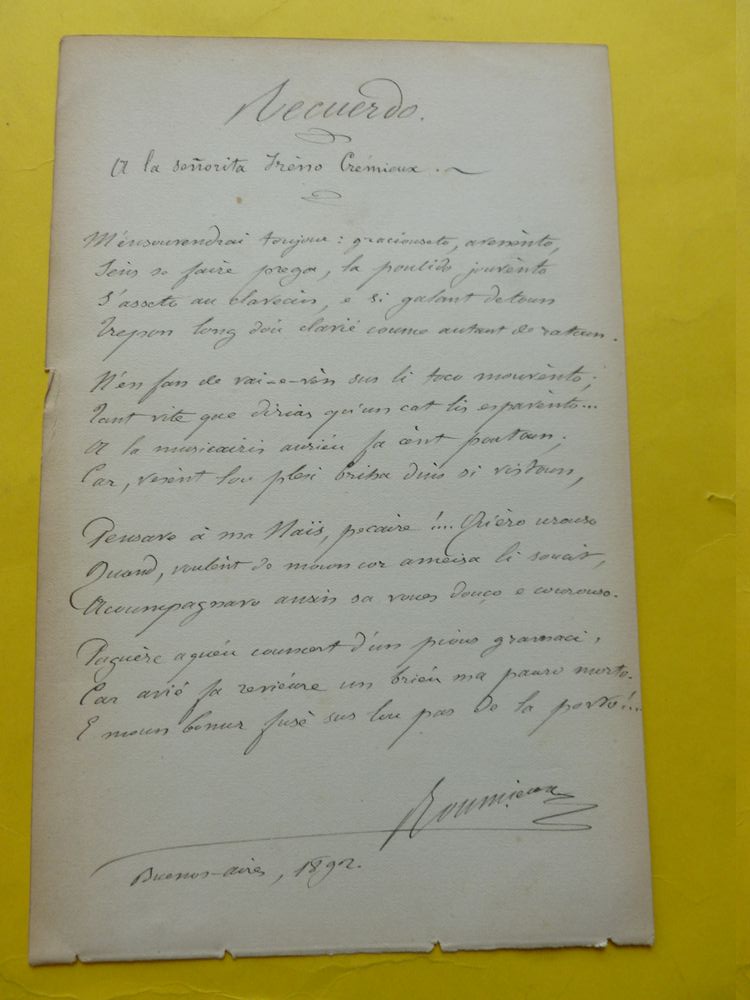 Recuerdo.
A la señorita Irèno Crémieux.
M'ensouvendrai toujour : graciouseto, avenènto,
Sèns se faire prega, la poulido jouvènto
S'asseto au clavecin, e si galant detoun
Trepon long dóu clavié coume autant de ratoun.
N'en fan de vai-e-vèn sus li toco mouvènto ;
Tant vite que dirias qu'un cat lis espavènto...
A la musicairis auriéu fa cènt poutoun ;
Car, vesènt lou plesi briha dins si vistoun,
Pensave à ma Naïs, pecaire !... Qu'èro urouso
Quand, voulènt de moun cor ameisa li soucit,
Acoumpagnavo ansin sa voues douço e courouso.
Paguère aquéu councert d'un pious gramaci,
Car avié fa reviéure un briéu ma pauro morto.
E moun bonur fusè sus lou pas de la porto !...
Roumieux
Buenos-aires, 1892.